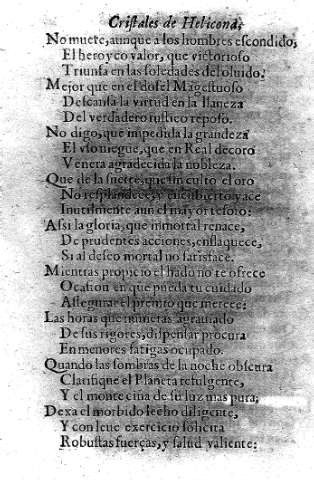 Cristales de Helicona,
No muere, aunque a los hombres escondido,
El heroyco valor, que victorioso
Triunfa en las soledades del oluido.
Mejor que en el dosel Magestuoso
Descansa la virtud en la llaneza
Del verdadero rustico reposo.
No digo, que impedida la grandeza
El vso niegue, que en Real decoro
Venera agradecida la nobleza.
Que de la suerte, que sin culto el oro
No resplandece, y encubierto yace
Inutilmente aun el mayor tesoro:
Assi la gloria, que inmortal renace,
De prudentes acciones, enflaquece,
Si al deseo mortal no satisface.
Mientras propicio el hado no te ofrece
Ocasion en que pueda tu cuidado
Assegurar el premio que merece:
Las horas que numeras agrauiado
De sus rigores, dispensar procura
En menores fatigas ocupado.
Quando las sombras de la noche obscura
Clarifique el Planeta refulgente,
Y el monte cina de su luz mas pura;
Dexa el morbido lecho diligente,
Y con leue exercicio solicita
Robustas fuerças, y salud valiente: